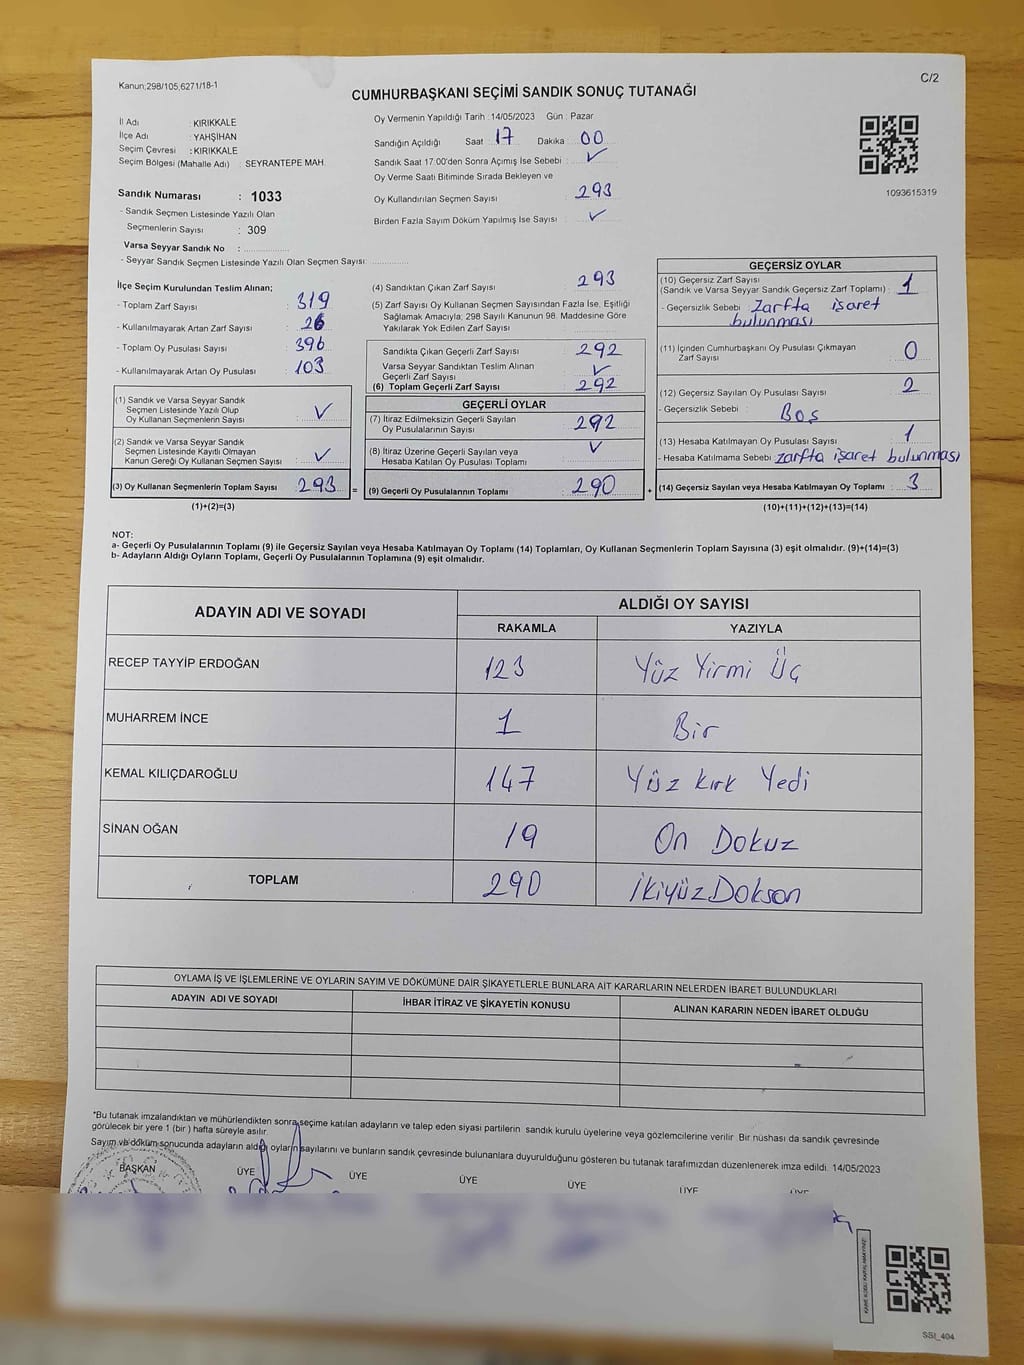 Kanun;298/105,6271/18-1
C/2
CUMHURBAŞKANI SEÇİMİ SANDIK SONUÇ TUTANAĞI
İl Adı : KIRIKKALE
İlçe Adı : YAHŞİHAN
Seçim Çevresi : KIRIKKALE
Seçim Bölgesi (Mahalle Adı) : SEYRANTEPE MAH.
Sandık Numarası : 1033
- Sandık Seçmen Listesinde Yazılı Olan
Seçmenlerin Sayısı : 309
Varsa Seyyar Sandık No :
- Seyyar Sandık Seçmen Listesinde Yazılı Olan Seçmen Sayısı:
Oy Vermenin Yapıldığı Tarih : 14/05/2023 Gün : Pazar
Sandığın Açıldığı Saat : 17 Dakika : 00
Sandık Saat 17:00'den Sonra Açımış İse Sebebi : ✓
Oy Verme Saati Bitiminde Sırada Bekleyen ve
Oy Kullandırılan Seçmen Sayısı : 293
Birden Fazla Sayım Döküm Yapılmış İse Sayısı : ✓
1093615319
İlçe Seçim Kurulundan Teslim Alınan;
- Toplam Zarf Sayısı : 319
- Kullanılmayarak Artan Zarf Sayısı : 26
- Toplam Oy Pusulası Sayısı : 396
- Kullanılmayarak Artan Oy Pusulası : 103
(1) Sandık ve Varsa Seyyar Sandık
Seçmen Listesinde Yazılı Olup
Oy Kullanan Seçmenlerin Sayısı : ✓
(2) Sandık ve Varsa Seyyar Sandık
Seçmen Listesinde Kayıtlı Olmayan
Kanun Gereği Oy Kullanan Seçmen Sayısı : ✓
(3) Oy Kullanan Seçmenlerin Toplam Sayısı : 293 =
(1)+(2)=(3)
(4) Sandıktan Çıkan Zarf Sayısı : 293
(5) Zarf Sayısı Oy Kullanan Seçmen Sayısından Fazla İse, Eşitliği
Sağlamak Amacıyla; 298 Sayılı Kanunun 98. Maddesine Göre
Yakılarak Yok Edilen Zarf Sayısı :
Sandıkta Çıkan Geçerli Zarf Sayısı : 292
Varsa Seyyar Sandıktan Teslim Alınan
Geçerli Zarf Sayısı : ✓
(6) Toplam Geçerli Zarf Sayısı : 292
GEÇERLİ OYLAR
(7) İtiraz Edilmeksizin Geçerli Sayılan
Oy Pusulalarının Sayısı : 292
(8) İtiraz Üzerine Geçerli Sayılan veya
Hesaba Katılan Oy Pusulası Toplamı : ✓
(9) Geçerli Oy Pusulalarının Toplamı : 290 +
GEÇERSİZ OYLAR
(10) Geçersiz Zarf Sayısı
(Sandık ve Varsa Seyyar Sandık Geçersiz Zarf Toplamı) : 1
- Geçersizlik Sebebi : Zarfta işaret
bulunması
(11) İçinden Cumhurbaşkanı Oy Pusulası Çıkmayan
Zarf Sayısı : 0
(12) Geçersiz Sayılan Oy Pusulası Sayısı : 2
- Geçersizlik Sebebi : Boş
(13) Hesaba Katılmayan Oy Pusulası Sayısı : 1
- Hesaba Katılmama Sebebi : zarfta işaret bulunması
(14) Geçersiz Sayılan veya Hesaba Katılmayan Oy Toplamı : 3
(10)+(11)+(12)+(13)=(14)
NOT:
a- Geçerli Oy Pusulalarının Toplamı (9) ile Geçersiz Sayılan veya Hesaba Katılmayan Oy Toplamı (14) Toplamları, Oy Kullanan Seçmenlerin Toplam Sayısına (3) eşit olmalıdır. (9)+(14)=(3)
b- Adayların Aldığı Oyların Toplamı, Geçerli Oy Pusulalarının Toplamına (9) eşit olmalıdır.
ADAYIN ADI VE SOYADI ALDIĞI OY SAYISI
RAKAMLA YAZIYLA
RECEP TAYYİP ERDOĞAN 123 Yüz Yirmi Üç
MUHARREM İNCE 1 Bir
KEMAL KILIÇDAROĞLU 147 Yüz kırk Yedi
SİNAN OĞAN 19 On Dokuz
TOPLAM 290 İkiyüz Dokson
OYLAMA İŞ VE İŞLEMLERİNE VE OYLARIN SAYIM VE DÖKÜMÜNE DAİR ŞİKAYETLERLE BUNLARA AİT KARARLARIN NELERDEN İBARET BULUNDUKLARI
ADAYIN ADI VE SOYADI İHBAR İTİRAZ VE ŞİKAYETİN KONUSU ALINAN KARARIN NEDEN İBARET OLDUĞU
*Bu tutanak imzalandıktan ve mühürlendikten sonra,seçime katılan adayların ve talep eden siyasi partilerin sandık kurulu üyelerine veya gözlemcilerine verilir. Bir nüshası da sandık çevresinde
görülecek bir yere 1 (bir ) hafta süreyle asılır.
Sayım ve döküm sonucunda adayların aldığı oyların sayılarını ve bunların sandık çevresinde bulunanlara duyurulduğunu gösteren bu tutanak tarafımızdan düzenlenerek imza edildi. 14/05/2023
BAŞKAN ÜYE ÜYE ÜYE ÜYE ÜYE ÜYE
SSI_404